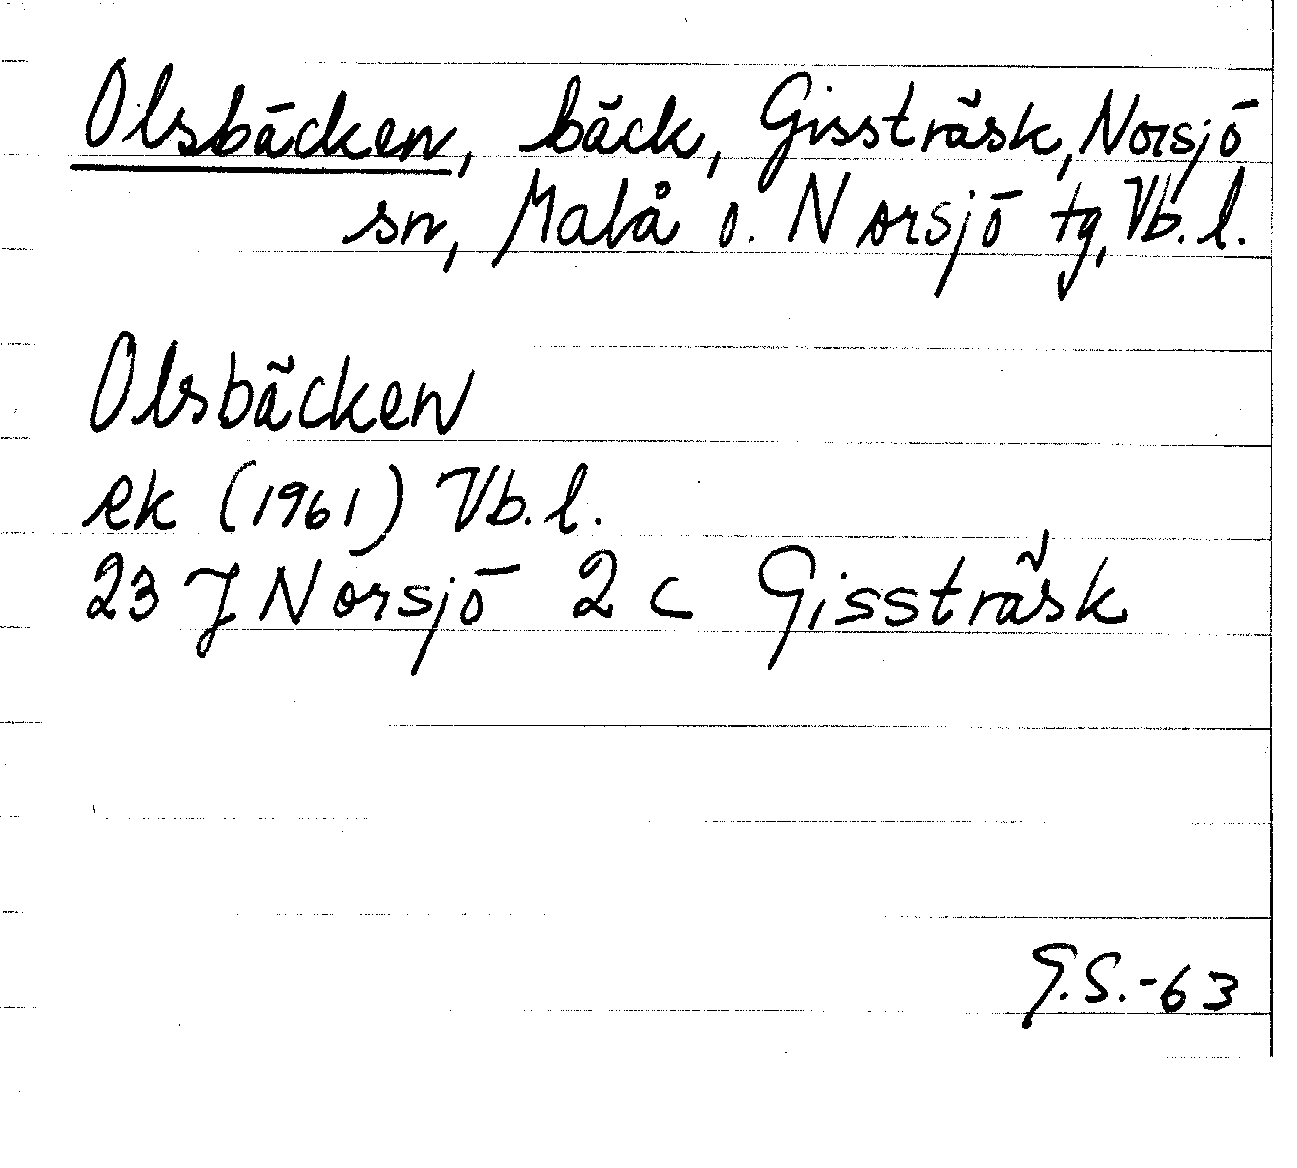 Olsbäcken, bäck, Gissträsk, Norsjö
sn, Malå o. Norsjö tg, Vb. l.
Olsbäcken
ek (1961) Vb. l.
23 J Norsjö 2 c Gissträsk
G.S.-63